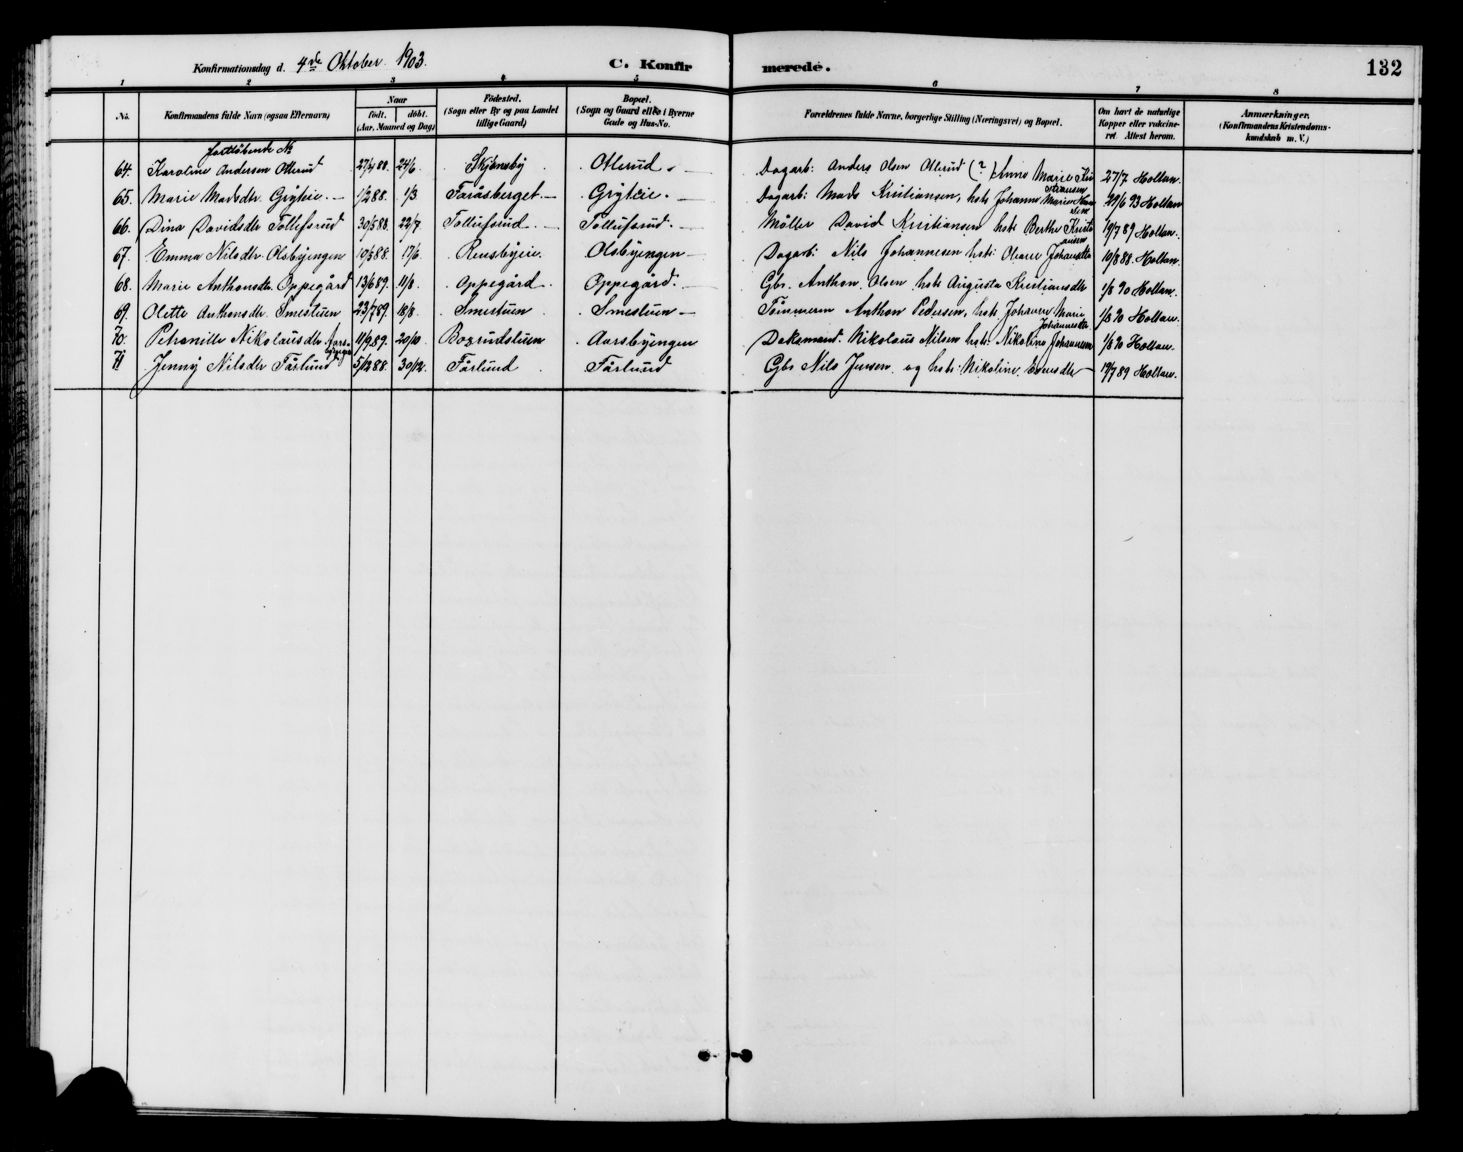 Konfirmationsdag d. 4de Oktober 1903.
C. Konfirmerede.
132
1 2 3 4 5 6 7 8
No.
Konfirmandens fulde Navn (ogsaa Efternavn)
Naar
födt. döbt.
(Aar, Maaned og Dag)
Födested.
(Sogn eller By og paa Landet
tillige Gaard)
Bopæl.
(Sogn og Gaard eller i Byerne
Gade og Hus-No.
Forældrenes fulde Navne, borgerlige Stilling (Næringsvei) og Bopæl.
Om havt de naturlige
Kopper eller vakcine-
ret. Attest herom.
Anmærkninger.
(Konfirmandens Kristendoms-
kundskab m. V.)
fortløbende No
64. Karoline Andersen Olerud 27/4 88. 24/6. Skjönsby Olerud Dagarb: Anders Olsen Olerud (?) Anne Marie Kristiansen 27/7 Holtan.
65. Marie Madsdtr. Gryteie. 1/2 88. 1/3 Faråsberget. Gryteie. Dagarb: Mads Kristiansen, hstr Johanne Marie 29/6 93 Holtan
66. Dina Davidsdtr Tollefsrud 30/5 88. 22/7 Tollufsrud. Tollufsrud. Möller David Kristiansen hstr Berthe Kristiansen 19/7 89 Holtan.
67. Emma Nilsdtr. Olsbyengen 10/5 88. 17/6. Rensbyeie. Olsbyengen Dagarb: Nils Johannesen hstr: Oleane Johansdtr 10/8 88. Holtan.
68. Marie Anthonsdtr. Oppegård 13/6 89. 11/8. Oppegård. Oppegård. Gbr. Anthon Olsen hstr Augusta Kristiansdtr 1/8 90 Holtan.
69. Olette Anthonsdtr. Smestuen 23/7 89. 18/8. Smestuen Smestuen Tömmerm Anthon Pedersen, hstr Johanne Marie Johannesdtr 1/8 90 Holtan.
70. Petronille Nikolausdtr Aarsbyengen 11/9 89. 20/10 Boxrudstuen Aarsbyengen Deksmand. Nikolaus Nilsen hstr: Nikoline Johannesen 1/8 90 Holtan.
71 Jenny Nilsdtr Fårlund 5/12 88. 30/12. Fårlund Fårlund Gbr Nils Jensen og hstr: Nikoline Evensdtr 19/7 89 Holtan.